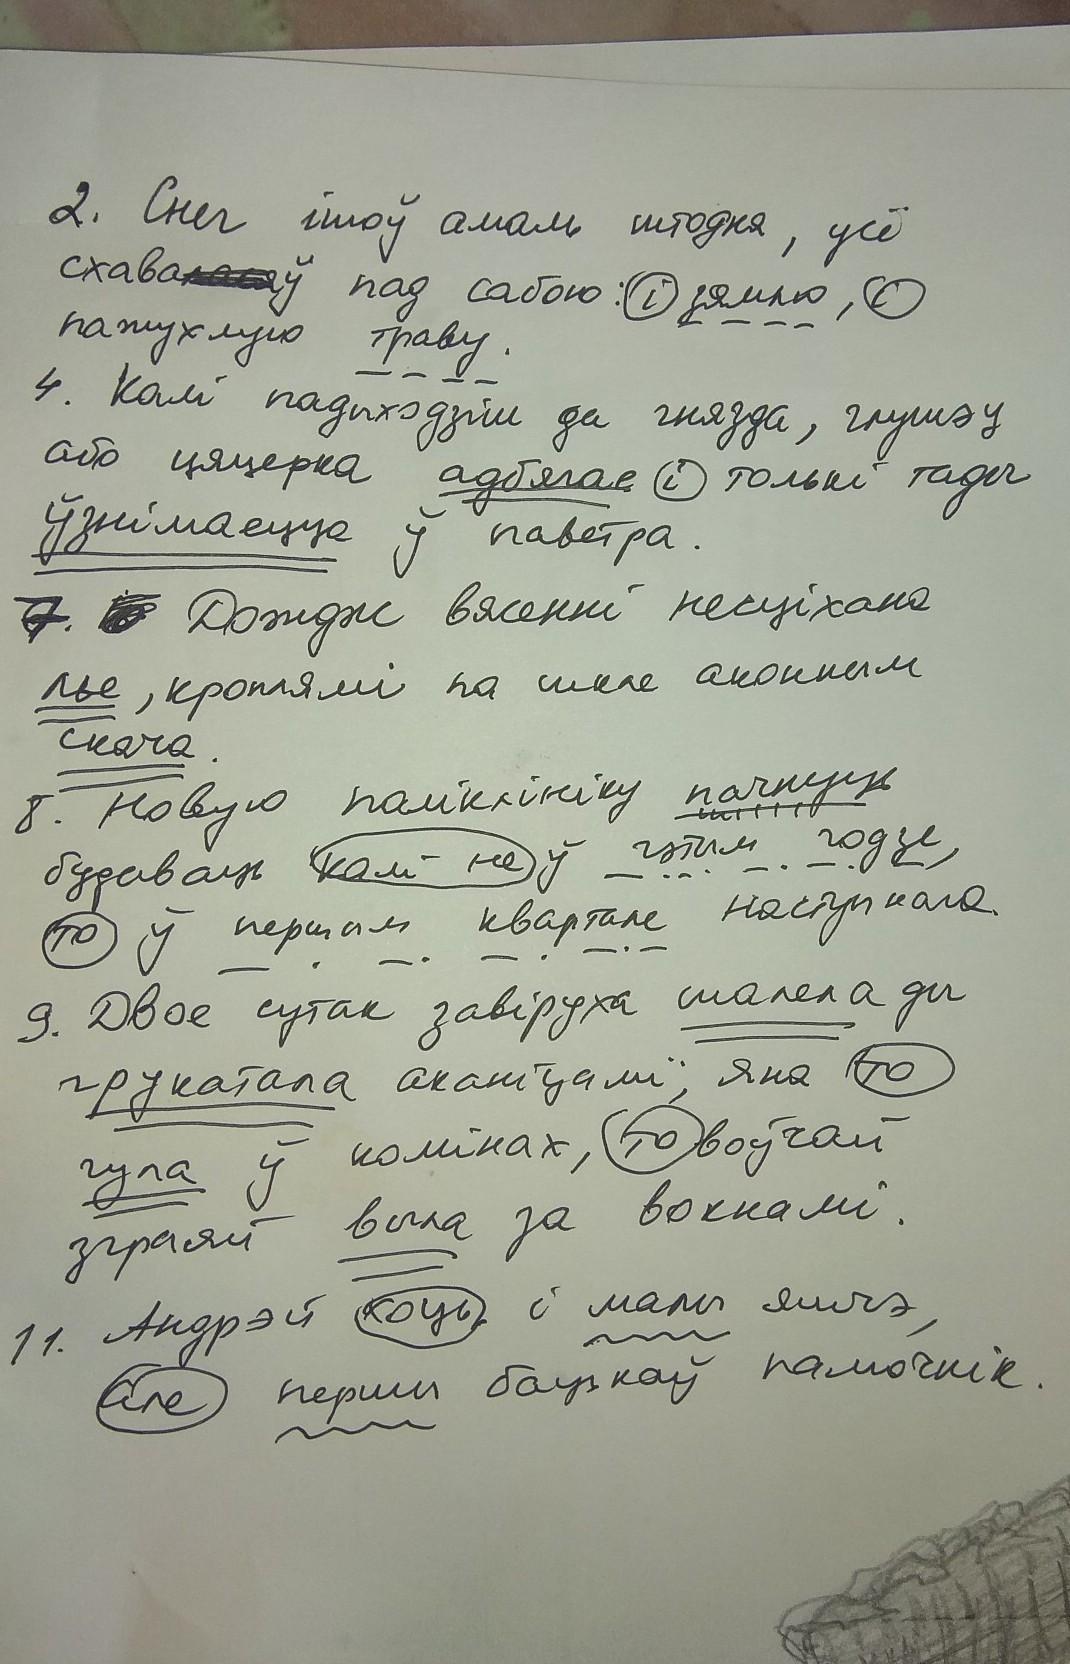 2. Снег ішоў амаль штодня, усё
схаваў пад сабою: і зямлю, і
пажухлую траву.
4. Калі падыходзіш да гнязда, глушэц
або цяцерка адбягае і толькі тады
ўзнімаецца ў паветра.
7. Дождж вясенні несціхана
лье, кроплямі па шкле аконным
скача.
8. Новую паліклініку пачнуць
будаваць калі не ў гэтым годзе,
то ў першым квартале наступнага.
9. Двое сутак завіруха шалела ды
грукатала аканіцамі, яна то
гула ў комінах, то воўчай
зграяй выла за вокнамі.
11. Андрэй хоць і малы яшчэ,
але першы бацькаў памочнік.